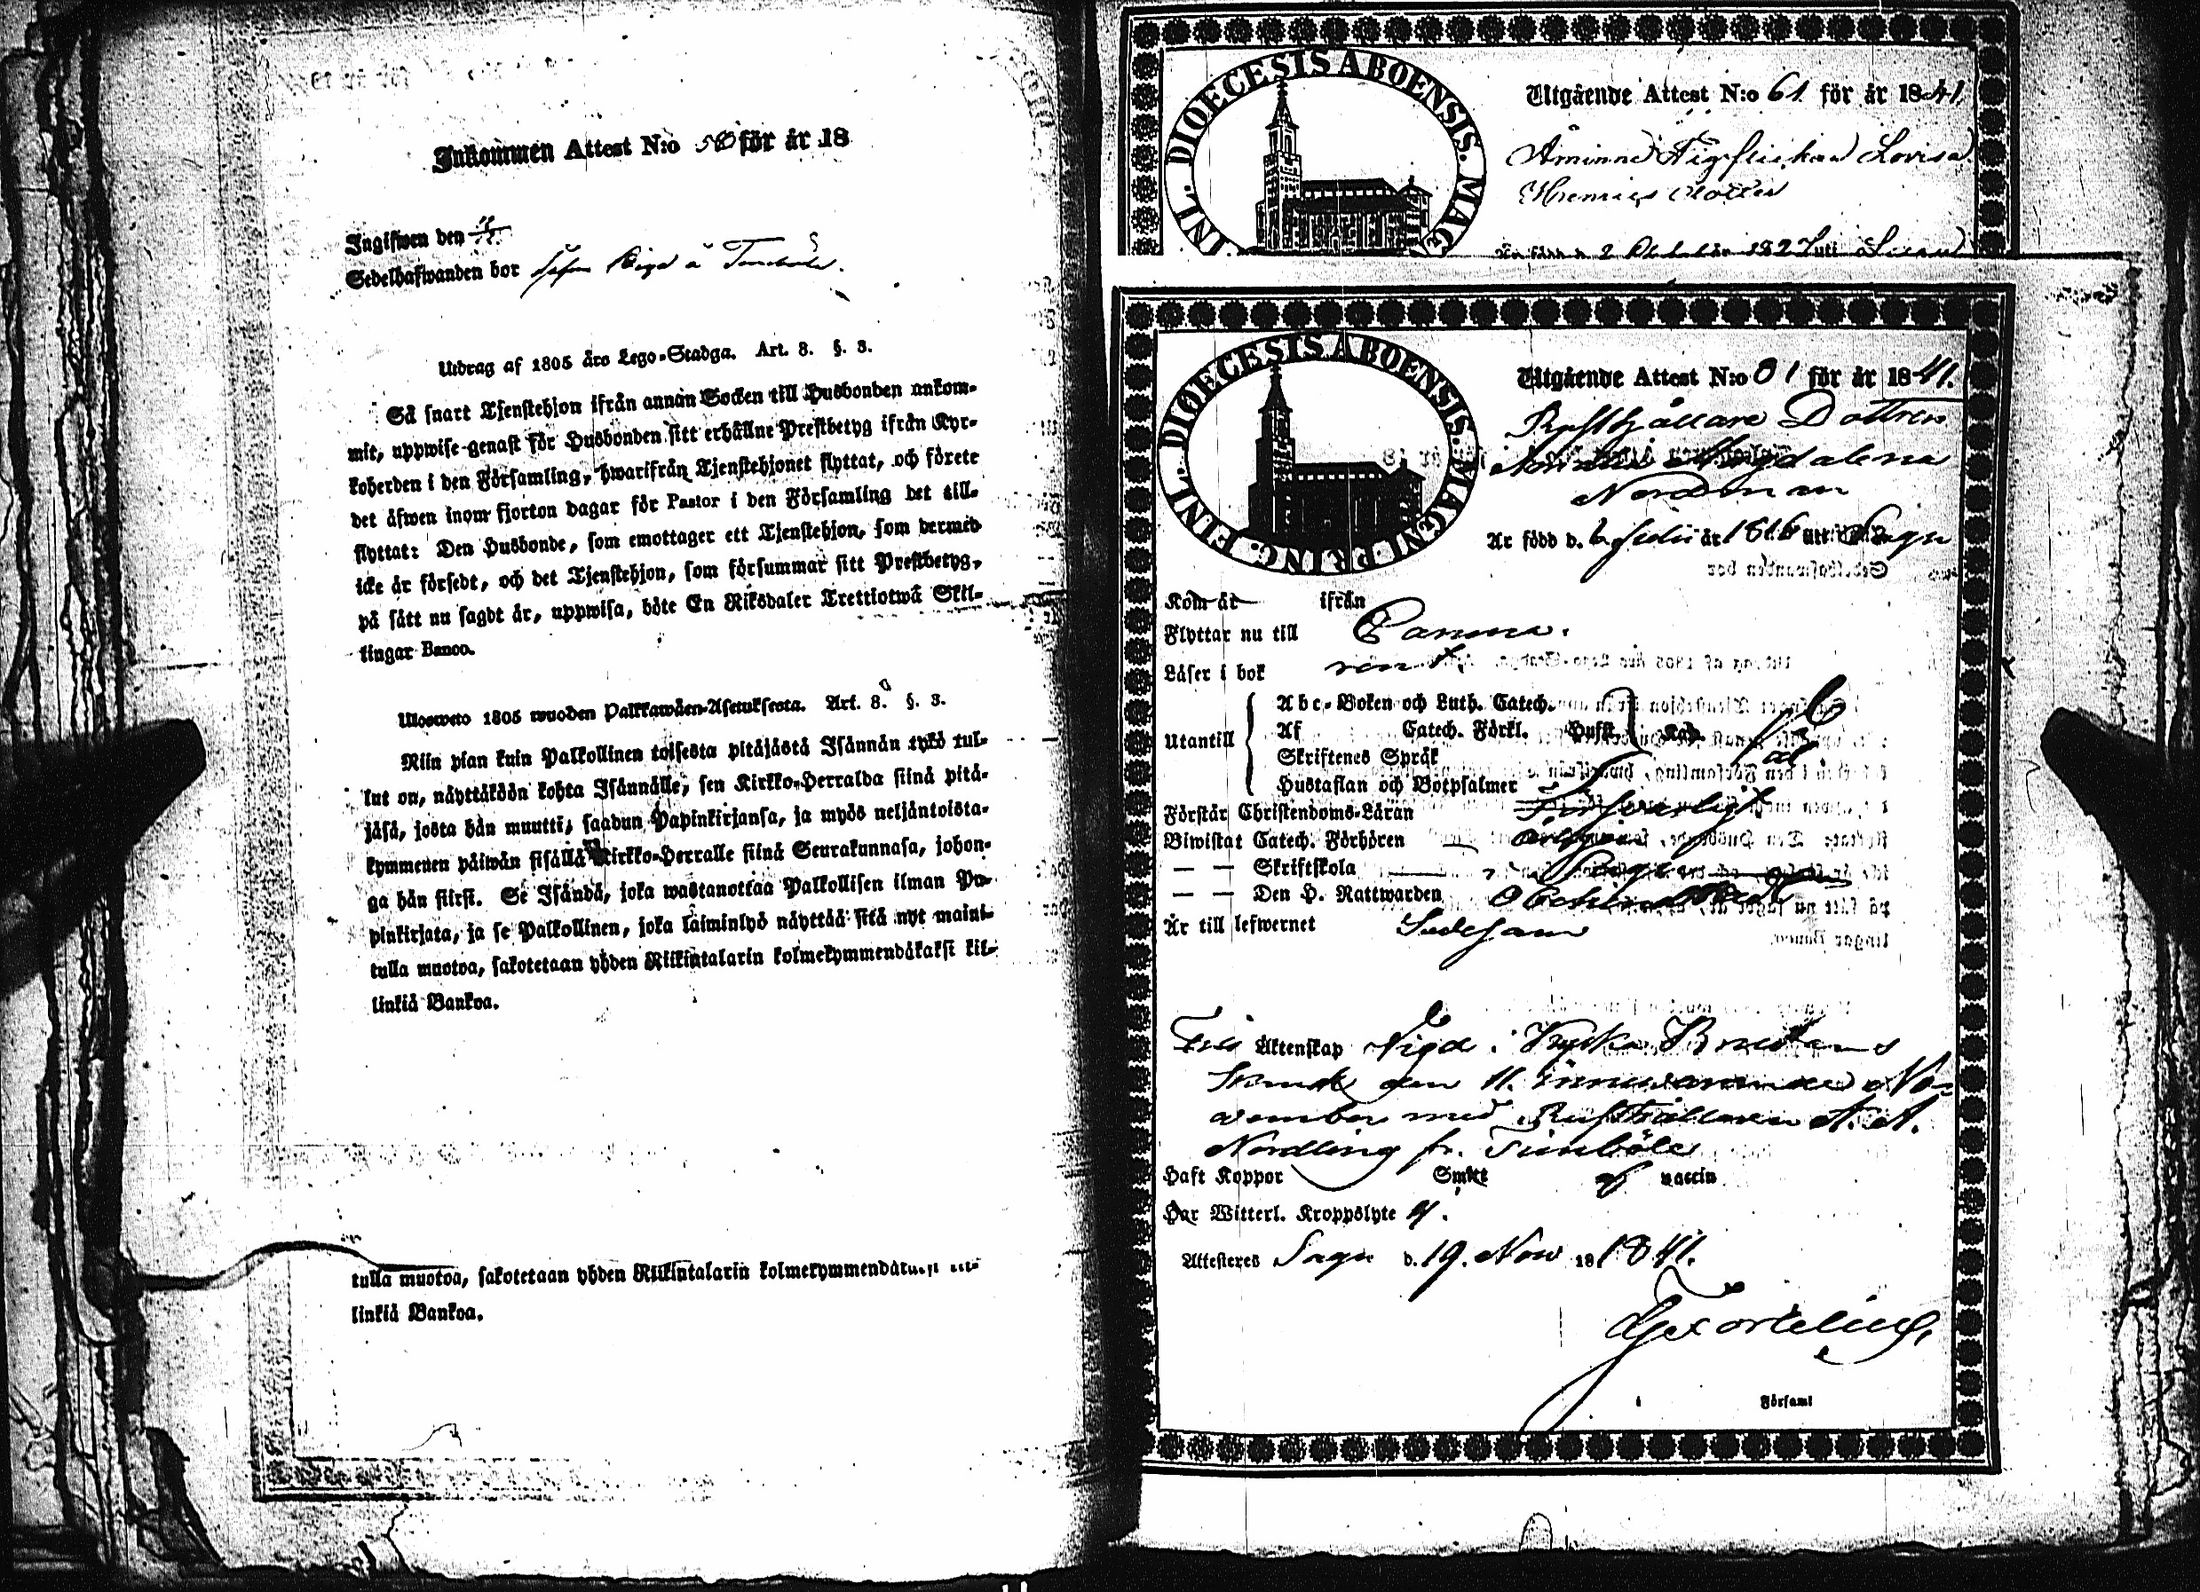 Inkommen Attest N:o 50 för år 18
Ingifwen den
Sedelhafwanden bor
Utdrag af 1805 års Lego-Stadga. Art. 8. §. 3.
Så snart Tjenstehjon ifrån annan Socken till Husbonden ankom-
mit, uppwise genast för Husbonden sitt erhållne Prestbetyg ifrån Kyr-
koherden i den Församling, hwarifrån Tjenstehjonet flyttat, och förete
det äfwen inom fjorton dagar för Pastor i den Församling det till-
flyttat: Den Husbonde, som emottager ett Tjenstehjon, som dermed
icke är försedt, och det Tjenstehjon, som försummar sitt Prestbetyg,
på sätt nu sagdt är, uppwisa, böte En Riksdaler Trettiotwå Skil-
lingar Banco.
Ulosweto 1805 wuoden Palkkawäen-Asetuksesta. Art. 8. §. 3.
Niin pian kuin Palkollinen toisesta pitäjästä Isännän tykö tul-
lut on, näyttäköön kohta Isännälle, sen Kirkko-Herralda siinä pitä-
jäsä, josta hän muutti, saadun Papinkirjansa, ja myös neljäntoista-
kymmenen päiwän sisällä Kirkko-Herralle siinä Seurakunnasa, johon-
ga hän siirsi. Se Isändä, joka wastanottaa Palkollisen ilman Pa-
pinkirjata, ja se Palkollinen, joka laiminlyö näyttää sitä nyt maini-
tulla muotoa, sakotetaan yhden Riikintalarin kolmekymmendäkaksi kil-
linkiä Bankoa.
tulla muotoa, sakotetaan yhden Riikintalarin kolmekymmendäkaksi kil-
linkiä Bankoa.
DIOECESIS ABOENSIS. MAG
INL.
Utgående Attest N:o 61 för år 1841.
Lovisa
Är född d. 2 Oktober 182
FINL. DIOECESIS ABOENSIS. MAGNI PRINC.
Utgående Attest N:o 81 för år 1841.
Rusthållare Dottren
Magdalena
Nordman
Är född d. 6 Julii år 1816 uti Sagu
Kom år ifrån
Flyttar nu till
Läser i bok rent.
Utantill
Abc-Boken och Luth. Catech.
Af Catech. Förkl.
Skriftenes Språk
Hustaflan och Botpsalmer
Förstår Christendoms-Läran Försvarligt
Biwistat Catech. Förhören
— — Skriftskola
— — Den H. Nattwarden
Är till lefwernet Sedesam
Till Äktenskap Vigd i Kyrka Brudens
den 11. innevarande No-
vember med Rusthållaren A. A.
Nordling fr. Timböle
Haft Koppor Smitt af vaccin
Har Witterl. Kroppslyte
Attesteres Sagu d. 19. Nov 18 1841.
Församl